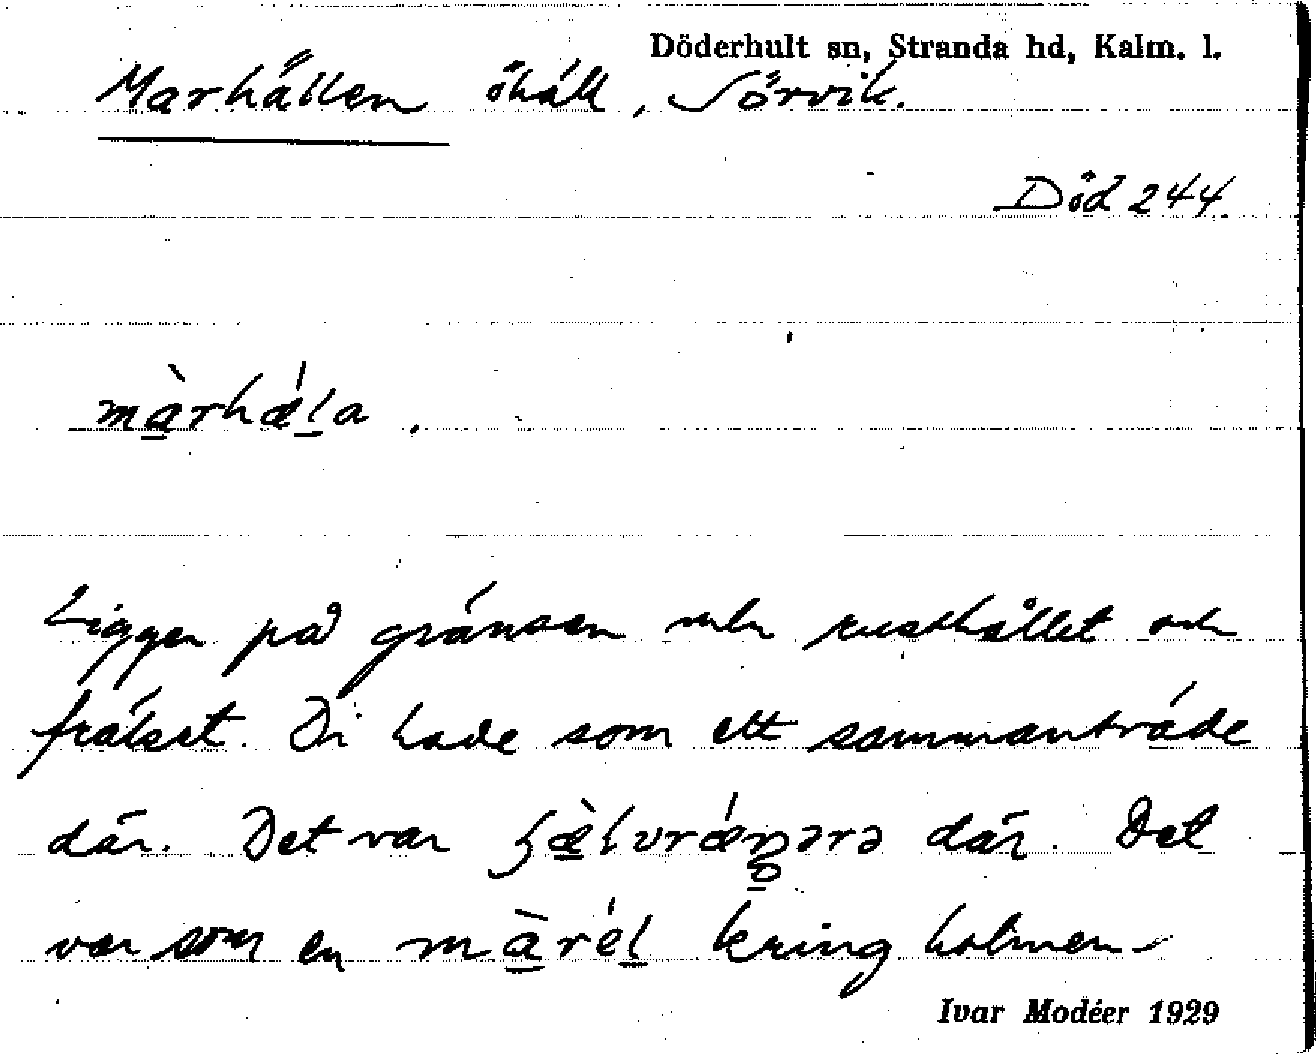 Döderhult sn, Stranda hd, Kalm. l.
Marhällen öhäll, Sörvik.
Död 244.
màrhǽla.
Ligger på gränsen mln rusthållet och
frälset. Di hade som ett sammanträde
där. Det var där. Det
var som en màrél kring holmen
Ivar Modéer 1929